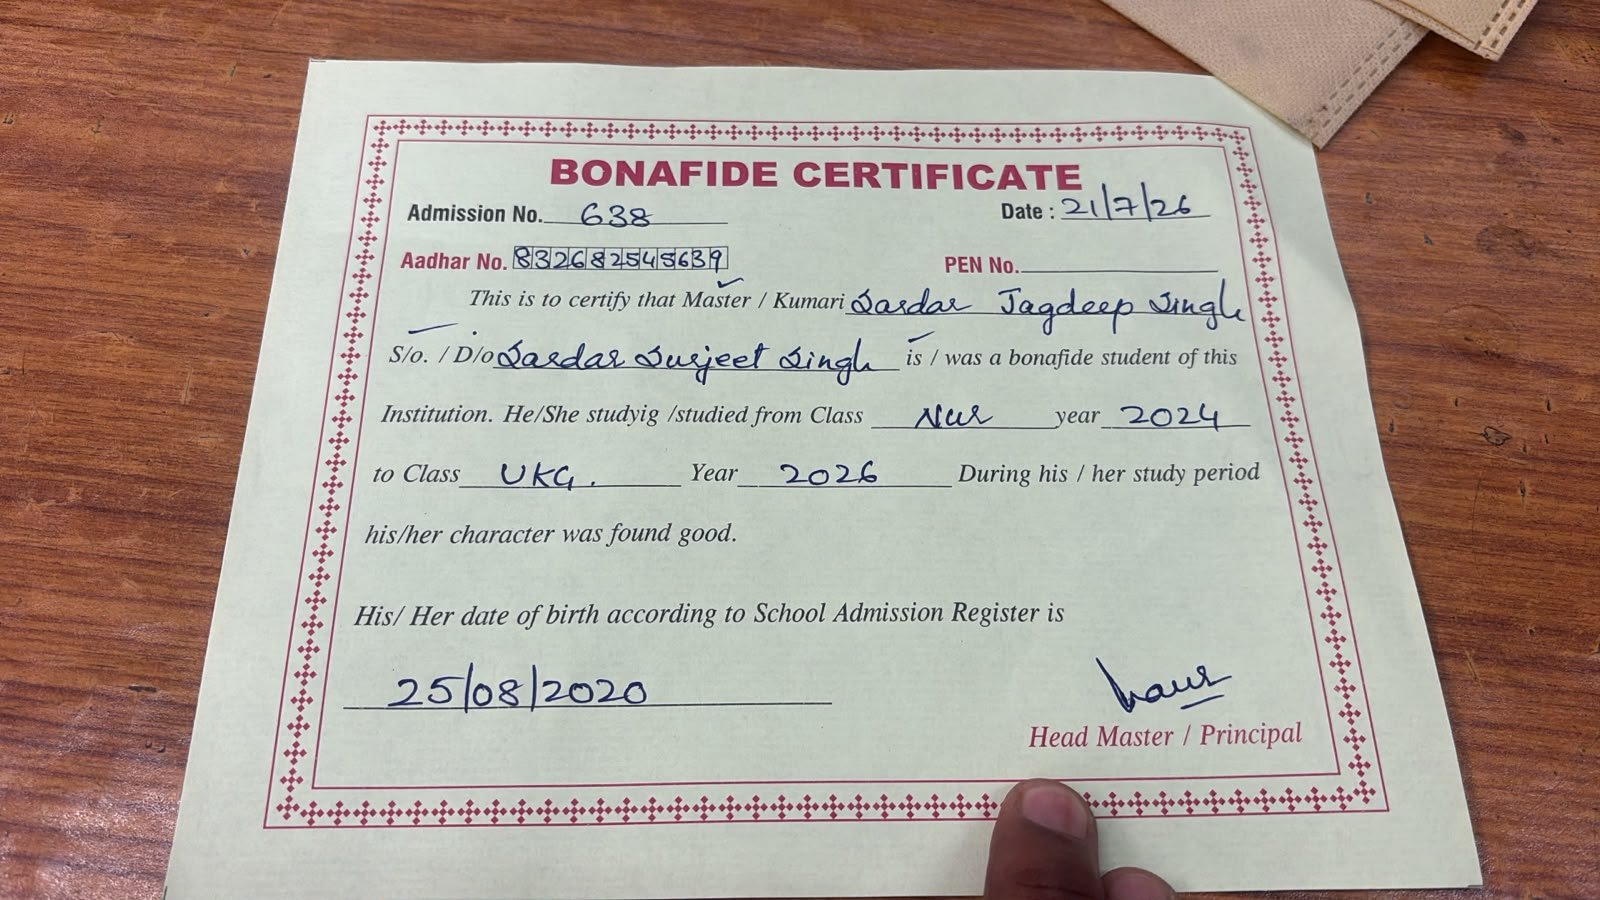 BONAFIDE CERTIFICATE
Admission No. 638 Date : 21/7/26
Aadhar No. 832682545639 PEN No.
This is to certify that Master / Kumari Sardar Jagdeep Singh
S/o. / D/o Sardar Surjeet Singh is / was a bonafide student of this
Institution. He/She studyig /studied from Class Nur year 2024
to Class UKG. Year 2026 During his / her study period
his/her character was found good.
His/ Her date of birth according to School Admission Register is
25/08/2020
Head Master / Principal